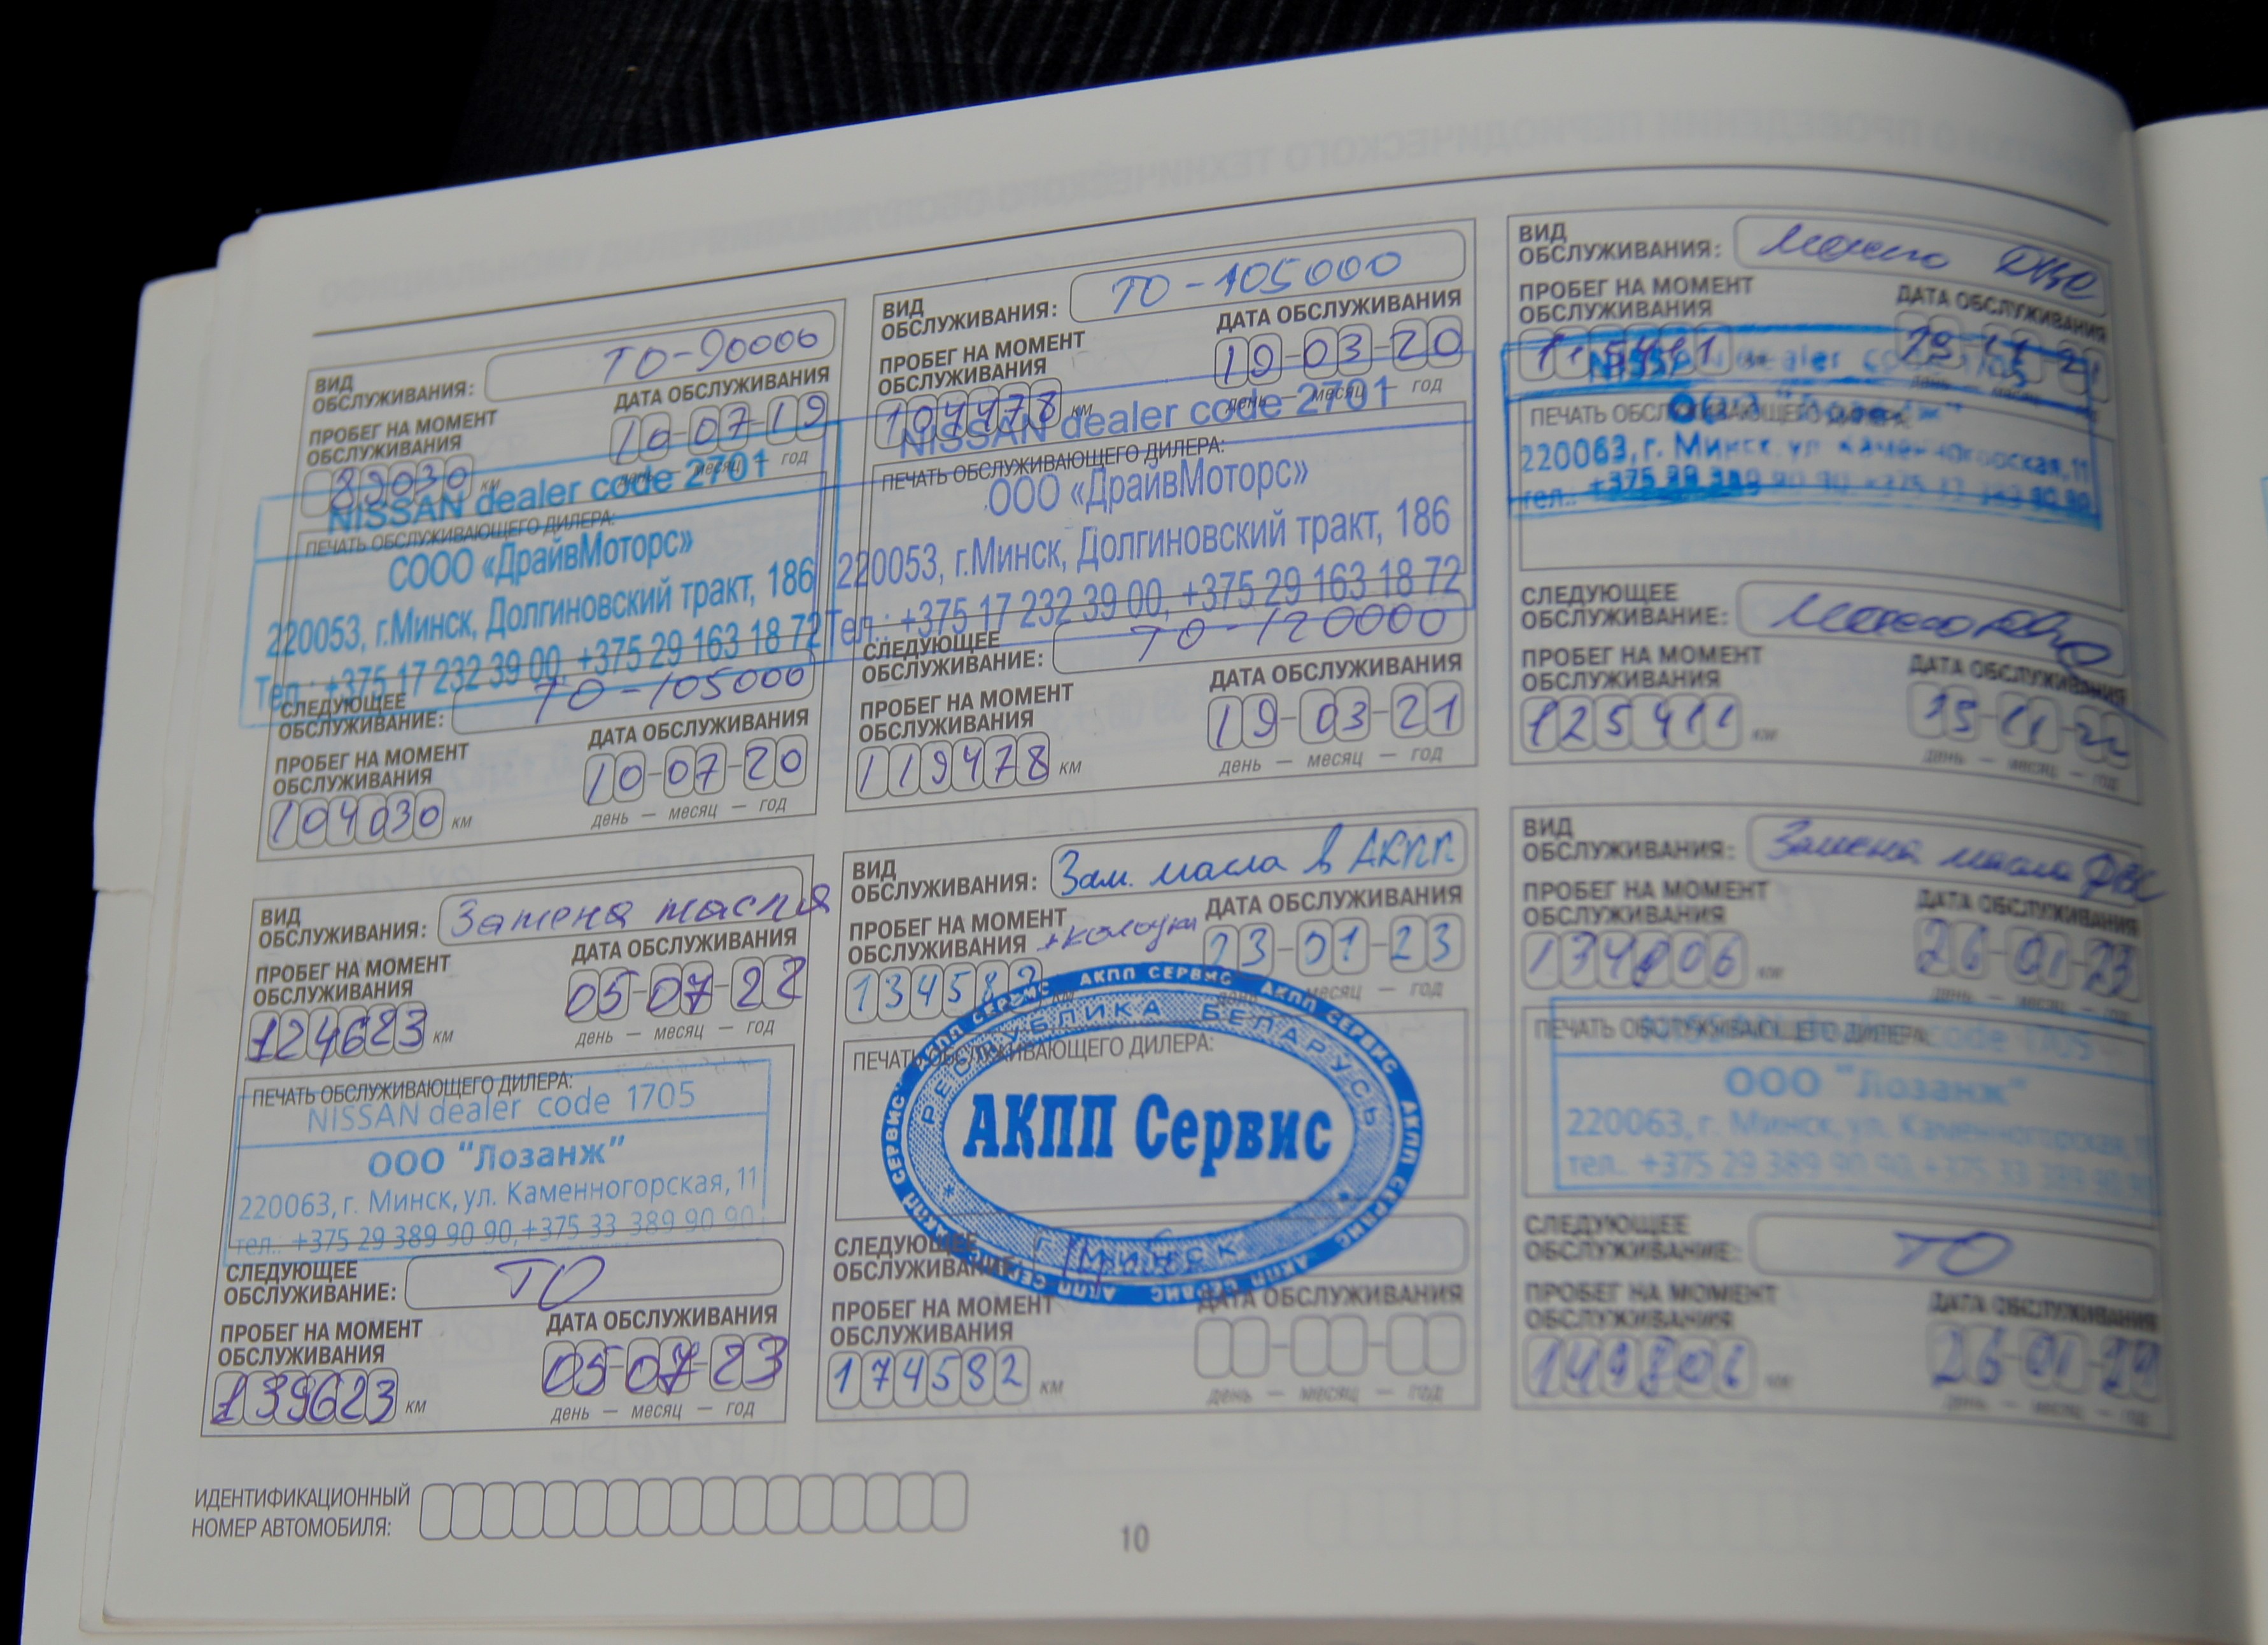 ВИД
ОБСЛУЖИВАНИЯ: ТО-90000
ПРОБЕГ НА МОМЕНТ
ОБСЛУЖИВАНИЯ
89030 км
ДАТА ОБСЛУЖИВАНИЯ
10-07-19
день — месяц — год
NISSAN dealer code 2701
ПЕЧАТЬ ОБСЛУЖИВАЮЩЕГО ДИЛЕРА:
СООО «ДрайвМоторс»
220053, г.Минск, Долгиновский тракт, 186
Тел.: +375 17 232 39 00, +375 29 163 18 72
СЛЕДУЮЩЕЕ
ОБСЛУЖИВАНИЕ: ТО-105000
ПРОБЕГ НА МОМЕНТ
ОБСЛУЖИВАНИЯ
104030 км
ДАТА ОБСЛУЖИВАНИЯ
10-07-20
день — месяц — год
ВИД
ОБСЛУЖИВАНИЯ: ТО-105000
ПРОБЕГ НА МОМЕНТ
ОБСЛУЖИВАНИЯ
104478 км
ДАТА ОБСЛУЖИВАНИЯ
19-03-20
день — месяц — год
NISSAN dealer code 2701
ПЕЧАТЬ ОБСЛУЖИВАЮЩЕГО ДИЛЕРА:
ООО «ДрайвМоторс»
220053, г.Минск, Долгиновский тракт, 186
Тел.: +375 17 232 39 00, +375 29 163 18 72
СЛЕДУЮЩЕЕ
ОБСЛУЖИВАНИЕ: ТО-120000
ПРОБЕГ НА МОМЕНТ
ОБСЛУЖИВАНИЯ
119478 км
ДАТА ОБСЛУЖИВАНИЯ
19-03-21
день — месяц — год
ВИД
ОБСЛУЖИВАНИЯ:
ПРОБЕГ НА МОМЕНТ
ОБСЛУЖИВАНИЯ
ДАТА ОБСЛУЖИВАНИЯ
NISSAN dealer code 1705
ПЕЧАТЬ ОБСЛУЖИВАЮЩЕГО ДИЛЕРА:
220063, г. Минск, ул. Каменногорская, 11
тел.: +375 29 389 90 90, +375 33 389 90 90
СЛЕДУЮЩЕЕ
ОБСЛУЖИВАНИЕ:
ПРОБЕГ НА МОМЕНТ
ОБСЛУЖИВАНИЯ
125411 км
ДАТА ОБСЛУЖИВАНИЯ
день — месяц — год
ВИД
ОБСЛУЖИВАНИЯ: Замена масля
ПРОБЕГ НА МОМЕНТ
ОБСЛУЖИВАНИЯ
124623 км
ДАТА ОБСЛУЖИВАНИЯ
05-07-22
день — месяц — год
ПЕЧАТЬ ОБСЛУЖИВАЮЩЕГО ДИЛЕРА:
NISSAN dealer code 1705
ООО "Лозанж"
220063, г. Минск, ул. Каменногорская, 11
тел.: +375 29 389 90 90, +375 33 389 90 90
СЛЕДУЮЩЕЕ
ОБСЛУЖИВАНИЕ: ТО
ПРОБЕГ НА МОМЕНТ
ОБСЛУЖИВАНИЯ
139623 км
ДАТА ОБСЛУЖИВАНИЯ
05-07-23
день — месяц — год
ВИД
ОБСЛУЖИВАНИЯ: Зам. масла в АКПП
+колодки
ПРОБЕГ НА МОМЕНТ
ОБСЛУЖИВАНИЯ
134582 км
ДАТА ОБСЛУЖИВАНИЯ
23-01-23
день — месяц — год
ПЕЧАТЬ ОБСЛУЖИВАЮЩЕГО ДИЛЕРА:
АКПП СЕРВИС АКПП СЕРВИС АКПП СЕРВИС АКПП СЕРВИС
РЕСПУБЛИКА БЕЛАРУСЬ
АКПП Сервис
Г. МИНСК
СЛЕДУЮЩЕЕ
ОБСЛУЖИВАНИЕ:
ПРОБЕГ НА МОМЕНТ
ОБСЛУЖИВАНИЯ
174582 км
ДАТА ОБСЛУЖИВАНИЯ
день — месяц — год
ВИД
ОБСЛУЖИВАНИЯ: Замена масла ДВС
ПРОБЕГ НА МОМЕНТ
ОБСЛУЖИВАНИЯ
134806 км
ДАТА ОБСЛУЖИВАНИЯ
26-01-23
день — месяц — год
ПЕЧАТЬ ОБСЛУЖИВАЮЩЕГО ДИЛЕРА:
NISSAN dealer code 1705
ООО "Лозанж"
220063, г. Минск, ул. Каменногорская, 11
тел.: +375 29 389 90 90, +375 33 389 90 90
СЛЕДУЮЩЕЕ
ОБСЛУЖИВАНИЕ: ТО
ПРОБЕГ НА МОМЕНТ
ОБСЛУЖИВАНИЯ
149806 км
ДАТА ОБСЛУЖИВАНИЯ
26-01-24
день — месяц — год
ИДЕНТИФИКАЦИОННЫЙ
НОМЕР АВТОМОБИЛЯ:
10